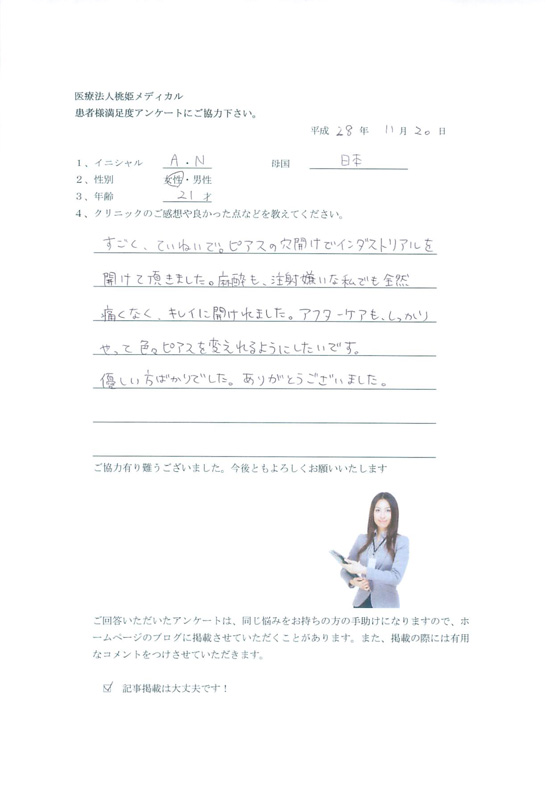 医療法人桃姫メディカル
患者様満足度アンケートにご協力下さい。
平成 28 年 11 月 20 日
1、イニシャル A・N 母国 日本
2、性別 女性・男性
3、年齢 21 才
4、クリニックのご感想や良かった点などを教えてください。
すごく、ていねいで。ピアスの穴開けでインダストリアルを
開けて頂きました。麻酔も、注射嫌いな私でも全然
痛くなく、キレイに開けれました。アフターケアも、しっかり
やって色々ピアスを変えれるようにしたいです。
優しい方ばかりでした。ありがとうございました。
ご協力有り難うございました。今後ともよろしくお願いいたします
ご回答いただいたアンケートは、同じ悩みをお持ちの方の手助けになりますので、ホ
ームページのブログに掲載させていただくことがあります。また、掲載の際には有用
なコメントをつけさせていただきます。
☑ 記事掲載は大丈夫です！